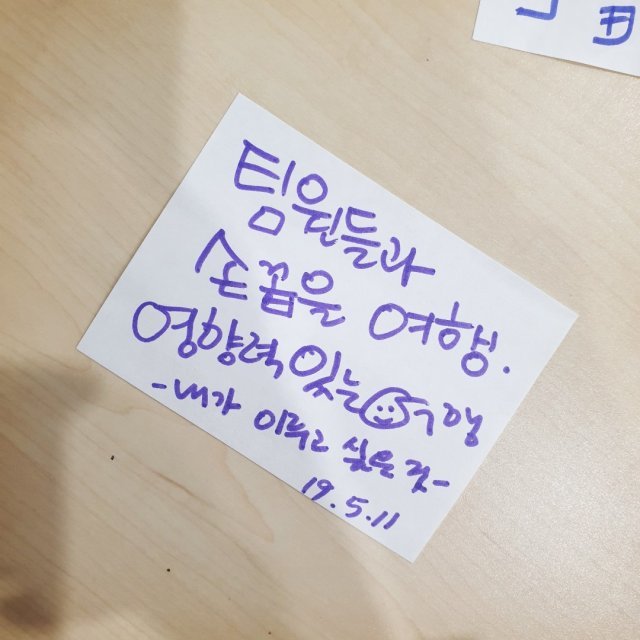 팀원들과
손꼽을 여행.
영향력 있는
-내가 이루고 싶은 것-
19.5.11